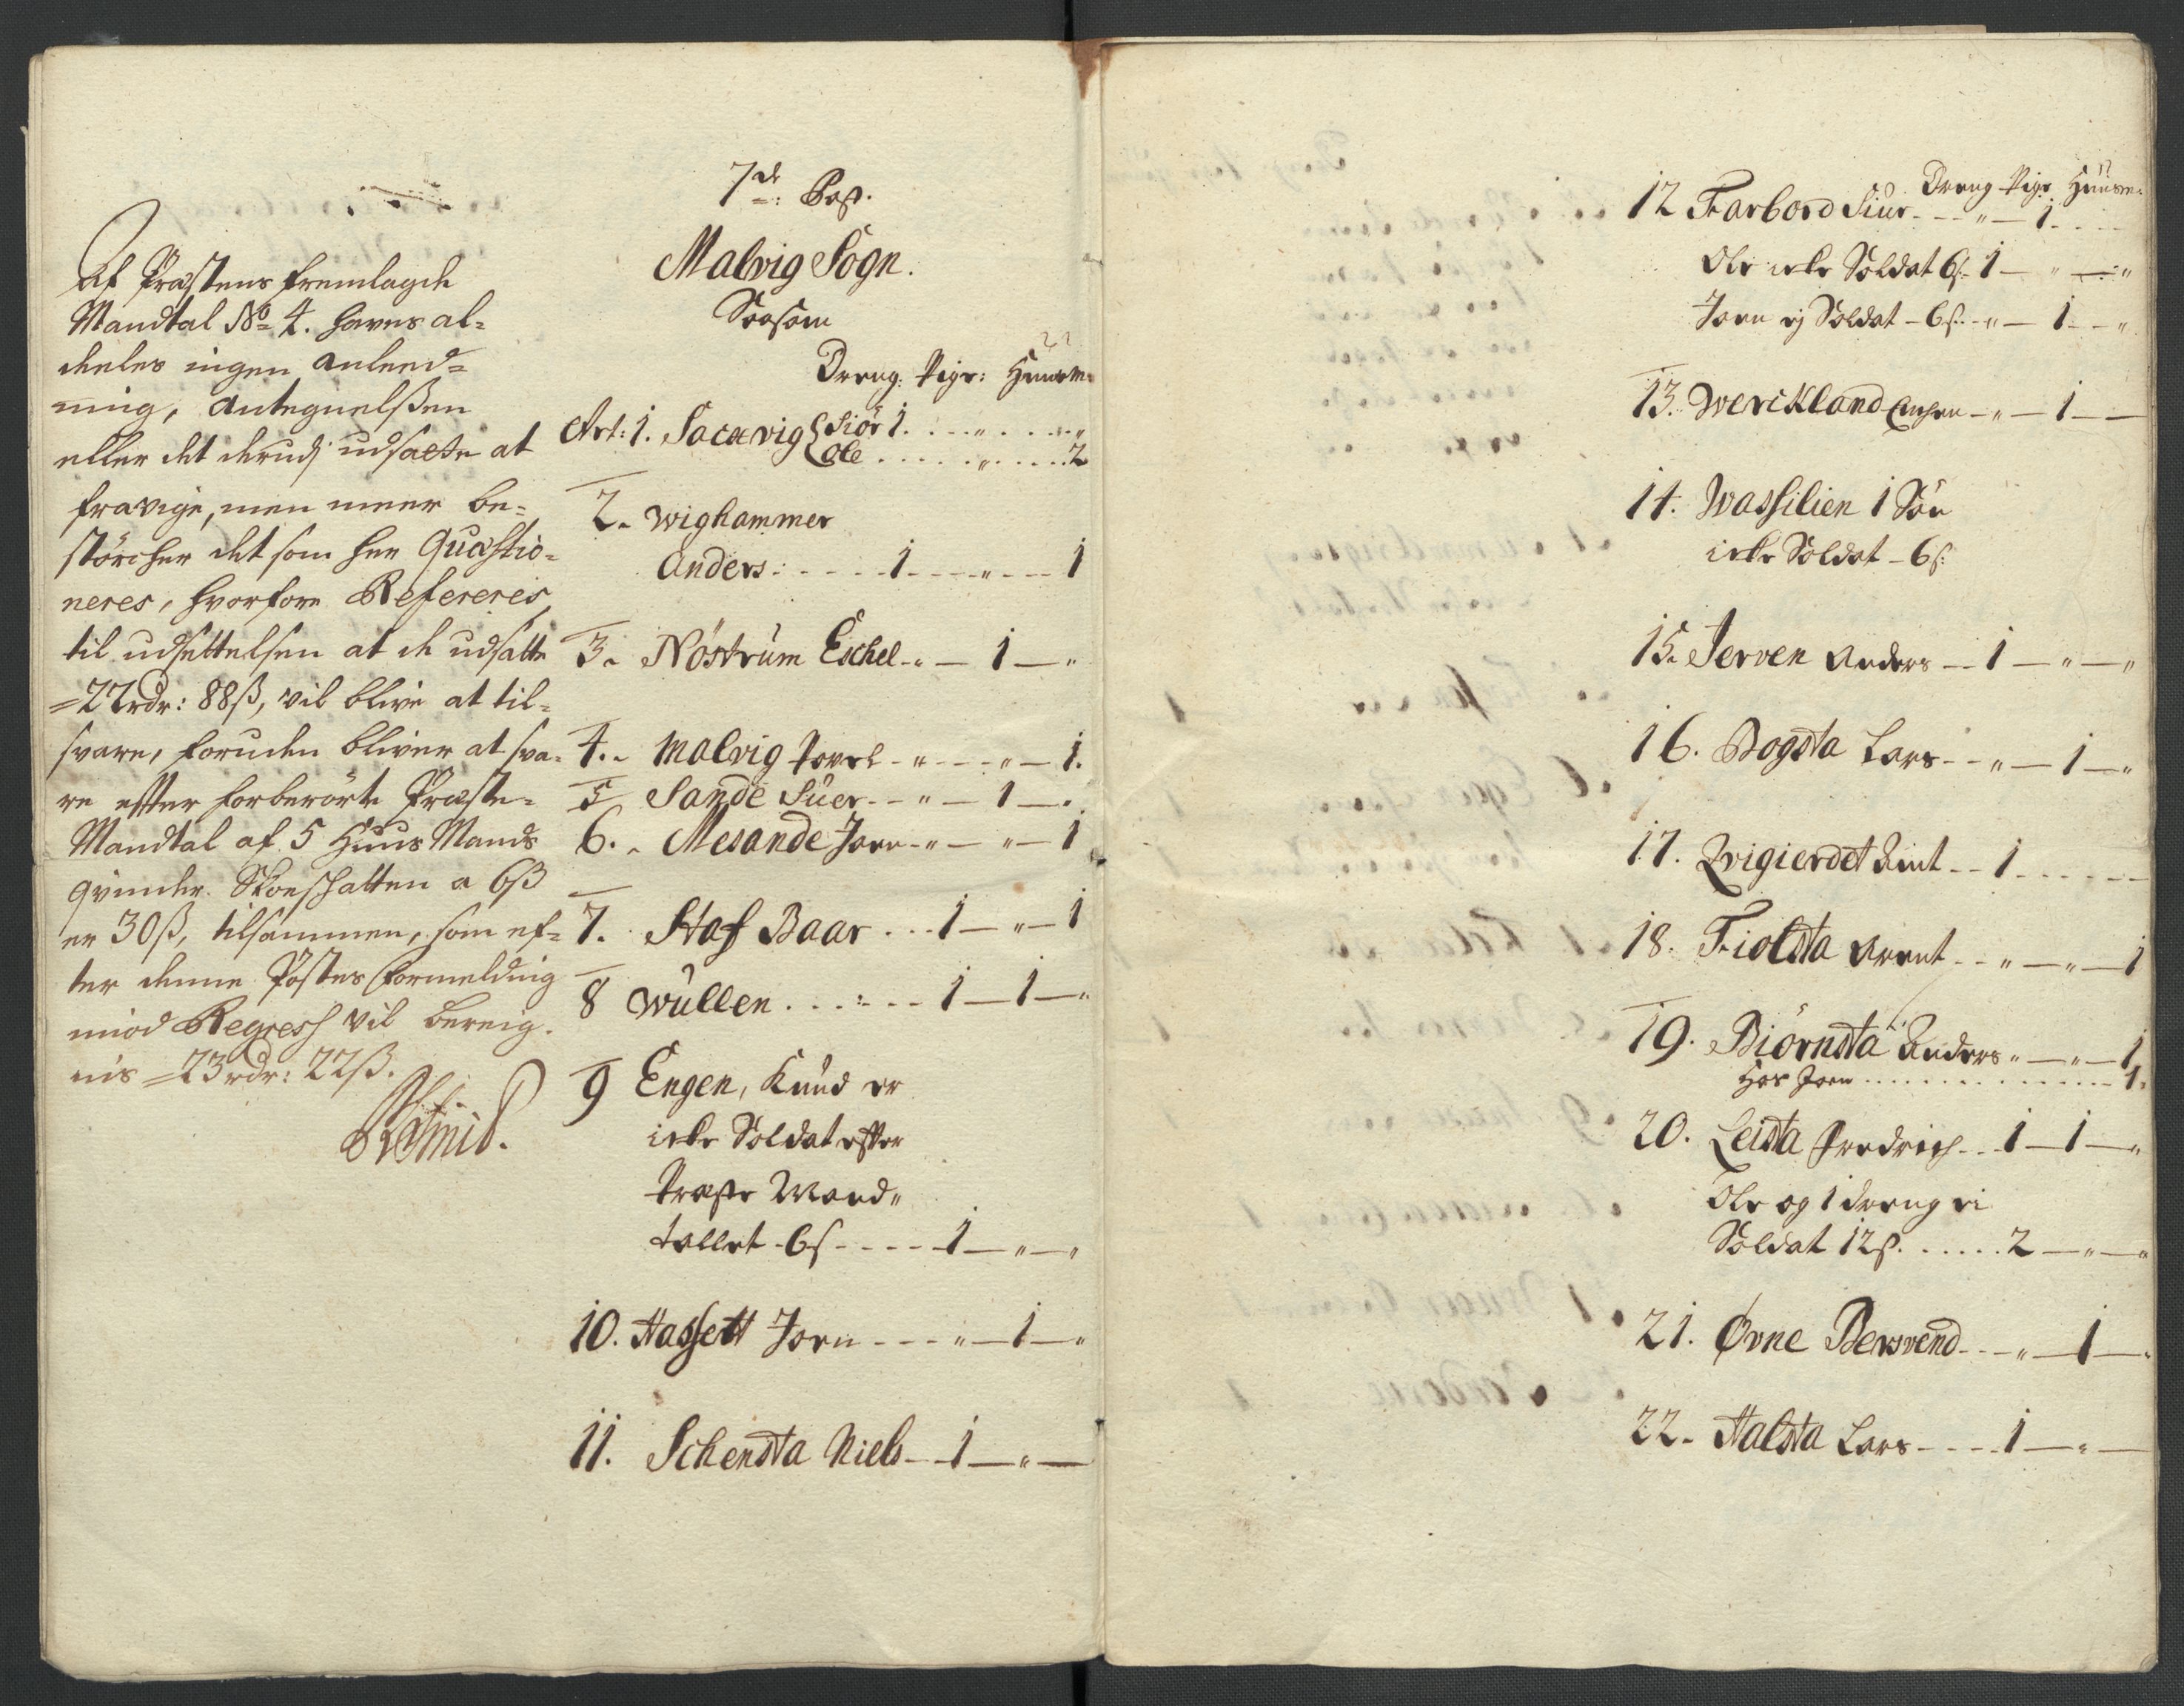 Af Præstens fremlagde
Mandtal No 4. haves al=
deeles ingen anleed=
ning, Antegnelsen
eller det derudj udsatte at
fravige, men meer be=
störcher det som her Quæstio=
neres, hvorfore Refereris
til udsettelsen at de udsatte
=22rdr: 88ß, vil blive at til=
svare, foruden bliver at sva=
re efter forberörte Præste=
Mandtal af 5 Huus Mands
qvinder Skoeschatten a 6ß
er 30ß, tilsammen, som ef=
ter denne Postes formelding
mod Regress vil bereig.
nis =23rdr: 22ß.
7de: Post.
Malvig Sogn.
Saasom
Dreng: Pige: Huusm:
Art: 1. Sacavig Siör 1. . . . " . . . "
Ole . . . . . " . . . . 2
2. Wighammer
Anders: - - - - 1 - - - " - - - 1
3. Nöstrüm Eschel - " — 1 — "
4. Malvig Povel - " - - - " — 1.
5 Sande Süer - - " — 1 — .
6. Mesande Joen - " — " — 1
7. Staf Baar . . . 1 — " — 1
8 Wüllen . . . : - - - 1 — 1 — "
9 Engen, Knud er
icke Soldat efter
Præste Mand"
tallet - 6ß - - - - - 1 — " — "
10. Hassett Joen - - - - " — 1 — "
11. Schensta Niels - - 1 — " —
Dreng Pige Huusm:
12 Farbord Siur - - - " — 1 . . . .
Ole icke Soldat 6ß: 1 — " — "
Joen ej Soldat - 6ß. - " — 1 - - "
13. Werckland - " — 1 — —
14. Wassilien 1 Sön
icke Soldat - 6ß:
15. Jerven Anders — 1 — " — "
16. Bogsta Lars - - " — 1 — "
17. Zvigierdet - - 1 . . . . .
18. Fiolsta Arent - - " — " — 1
19. Biörnsta Anders " — " — 1
Hos Joen . . . . . . . . . . . . . 1.
20. Leista Fredrich . . 1 — 1 — "
Ole og 1 dreng ei
Soldat 12ß. . . . . . 2 — " — "
21. Ørne Bersvend - - - " — 1 — .
22. Halsta Lars - - - - 1 — " —